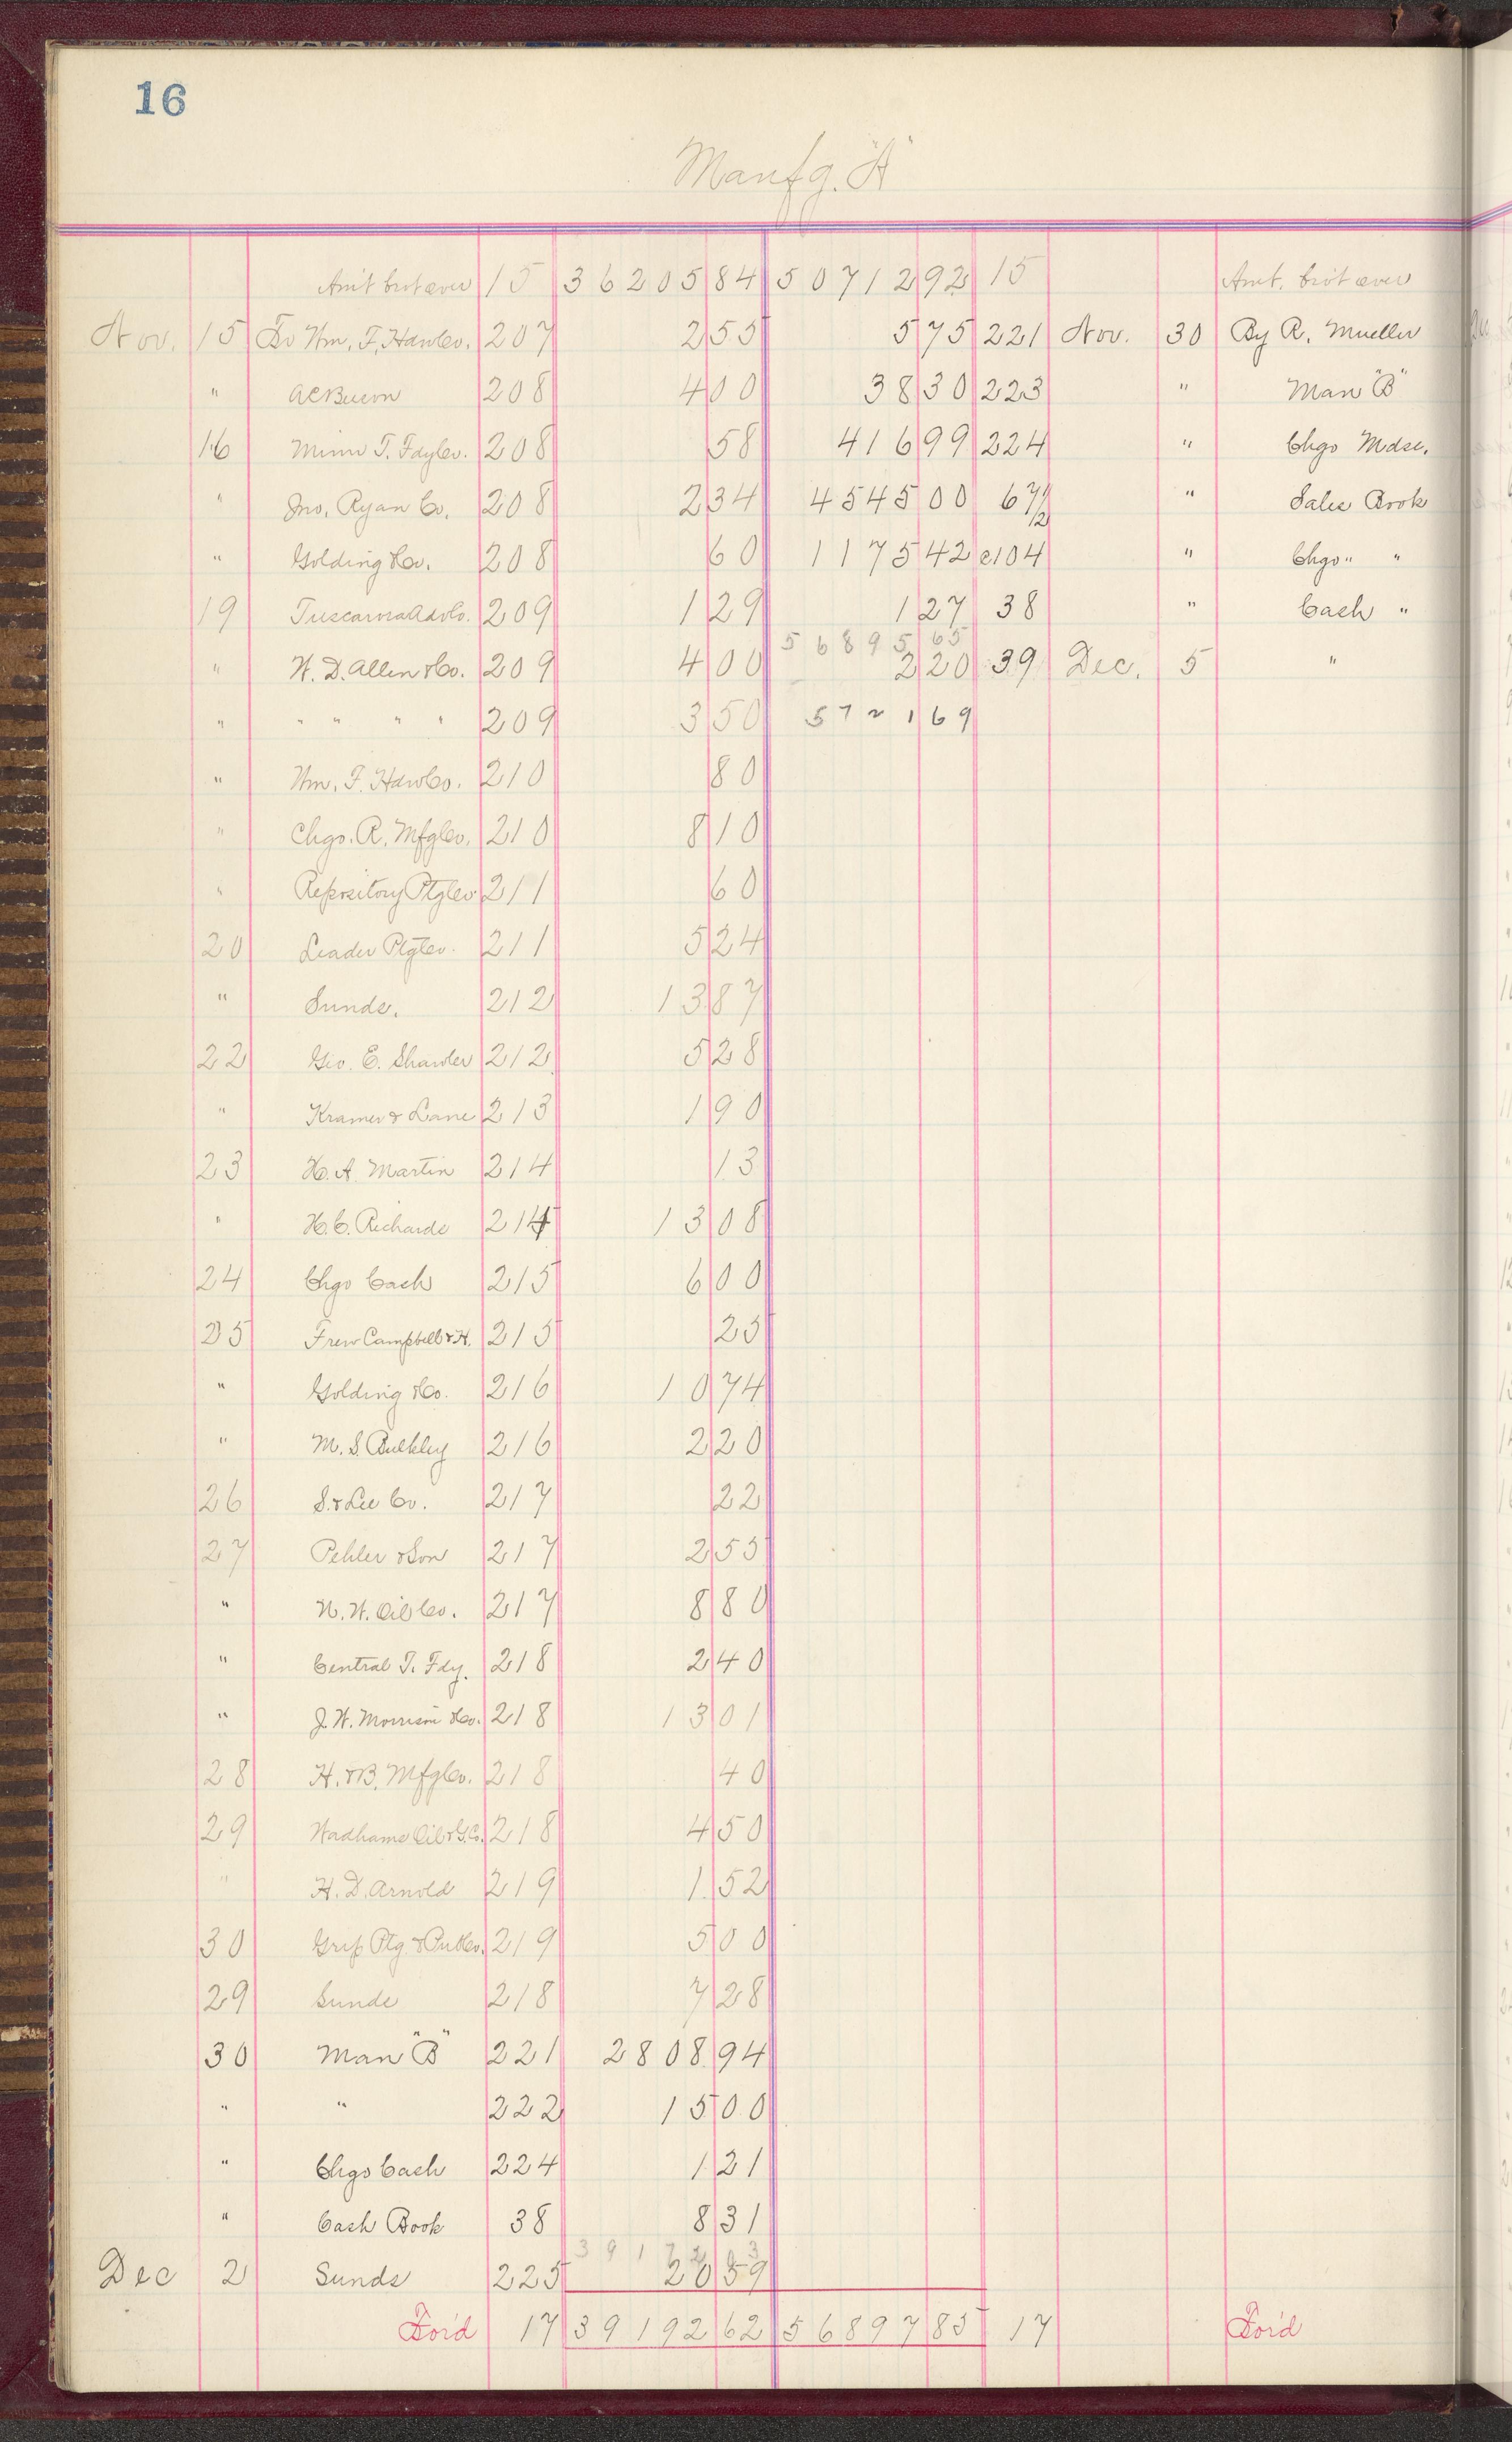 16
Manfg. "A"
Am't brot over 15 36205 84 50712 92 15 Amt. brot over
Nov. 15 To Wm. F. Haw Co. 207 2 55 5 75 221 Nov. 30 By R. Mueller
" 208 4 00 38 30 223 " Man "B"
16 Minn T. Fdy Co. 208 58 416 99 224 " Chgo Mdse.
" Jno. Ryan Co. 208 2 34 4545 00 67 1/2 " Sales Book
" Golding & Co. 208 60 1175 42 c104 " Chgo " "
19 Tuscarora Adv Co. 209 1 29 1 27 38 " Cash "
56895 65
" W. D. Allen & Co. 209 4 00 2 20 39 Dec. 5 "
" " " " " 209 3 50 57 2 1 69
" Wm. F. Haw Co. 210 80
" Chgo. R. Mfg Co. 210 8 10
" Repository Ptg Co 211 60
20 Leader Ptg Co. 211 5 24
" Sunds. 212 13 87
22 Geo. E. 212 5 28
" Kramer & Lane 213 1 90
23 H. A. Martin 214 13
" H. C. Richards 214 13 08
24 Chgo Cash 215 6 00
25 Frew Campbell & H. 215 25
" Golding & Co. 216 10 74
" M. S. Bulkley 216 2 20
26 S. & Lee Co. 217 22
27 Pehler & Son 217 2 55
" N. W. Oil Co. 217 8 80
" Central T. Fdy. 218 2 40
" J. W. Morrison & Co. 218 13 01
28 H. & B. Mfg Co. 218 40
29 Wadhams Oil & G. Co. 218 4 50
" H. D. Arnold 219 1 52
30 Grip Ptg & Pub Co. 219 5 00
29 Sunds 218 7 28
30 Man "B" 221 2808 94
" " 222 15 00
" Chgo Cash 224 1 21
" Cash Book 38 8 31
Dec 2 Sunds 225 20 59
For'd 17 39192 62 56897 85 17 For'd